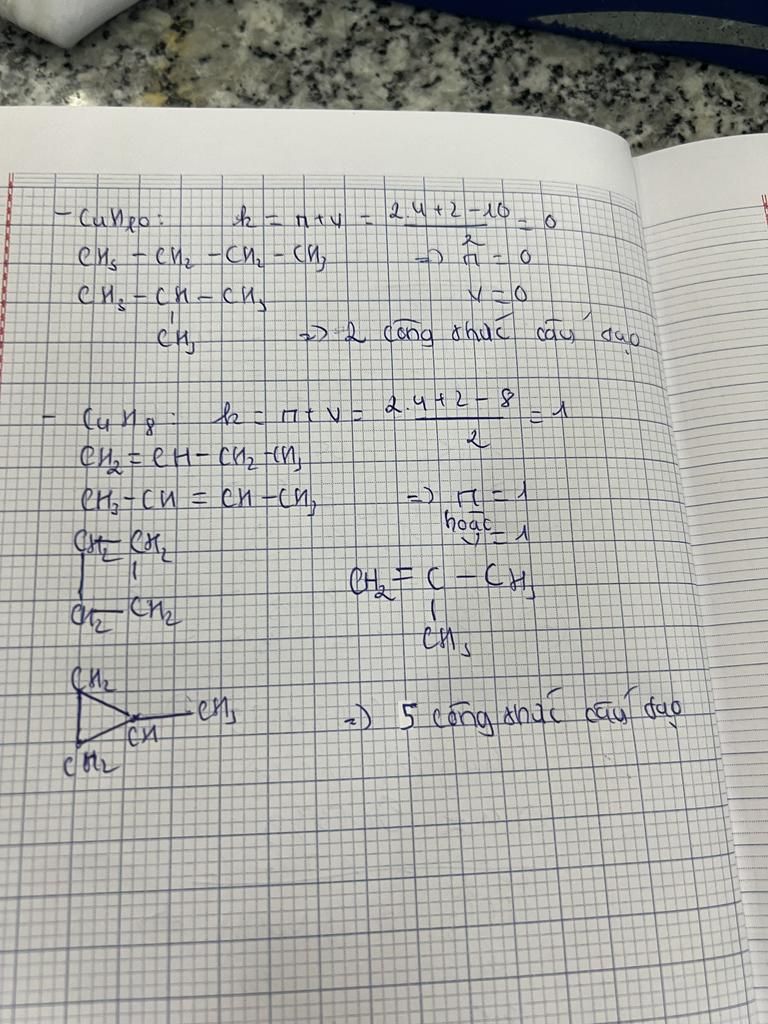 - C₄H₁₀: k = π + v = (2.4 + 2 - 10)/2 = 0
CH₃ - CH₂ - CH₂ - CH₃ => π = 0
CH₃ - CH - CH₃ v = 0
|
CH₃ => 2 công thức cấu tạo
- C₄H₈: k = π + v = (2.4 + 2 - 8)/2 = 1
CH₂ = CH - CH₂ - CH₃
CH₃ - CH = CH - CH₃ => π = 1
hoặc
v = 1
CH₂ - CH₂
| |
CH₂ - CH₂
CH₂ = C - CH₃
|
CH₃
CH₂
CH - CH₃
CH₂
=> 5 công thức cấu tạo